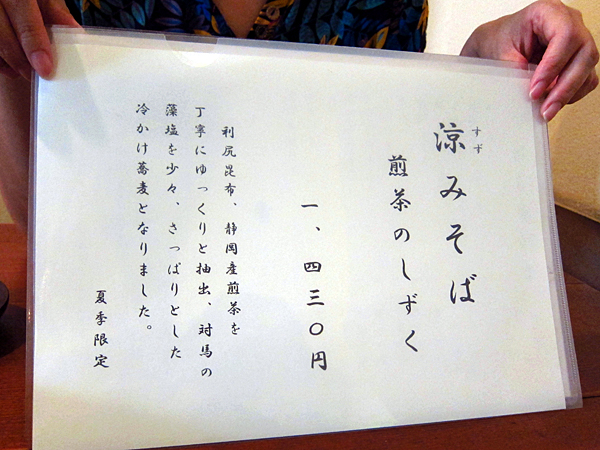 涼みそば
すず
煎茶のしずく
一、四三〇円
利尻昆布、静岡産煎茶を
丁寧にゆっくりと抽出、対馬の
藻塩を少々、さっぱりとした
冷かけ蕎麦となりました。
夏季限定